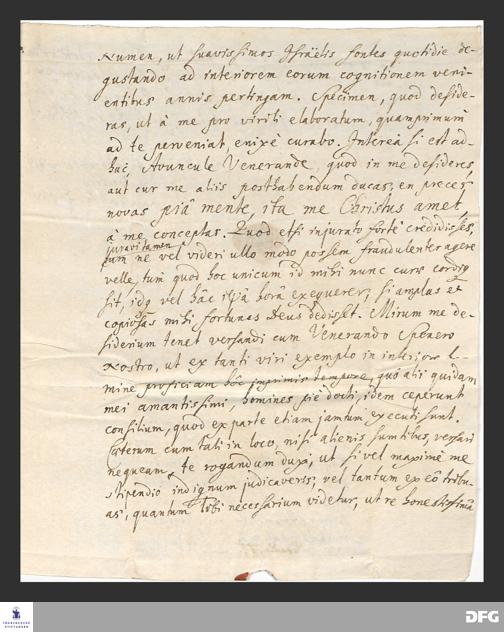 Numen, ut suavissimos Israëlis fontes quotidie de-
gustando ad interiorem eorum cognitionem veni-
entibus annis pertingam. Specimen, quod deside-
ras, ut à me pro virili elaboratum, quamprimùm
ad te perveniat, enixè curabo. Intereà si est ad-
huc, Avuncule Venerande, quod in me desideres,
aut cur me aliis posthabendum ducas, en, preces
novas piâ mente, ita me Christus amet,
à me conceptas. Quod etsi injurato fortè credidisses,
juravi tamen
tum ne vel videri ullo modo possem fraudulenter agere
velle, tum quod hoc unicum id mihi nunc curæ cordiq
sit, idq vel hâc ipsâ horâ exequerer, si amplas et
copiosas mihi fortunas Deus dedisset. Mirum me de-
siderium tenet versandi cum Venerando Spenero
nostro, ut ex tanti viri exemplo in interiore l-
mine proficiam hôc imprimis tempore, quô alii quidam
mei amantissimi, homines piè docti, idem ceperunt
consilium, quod ex parte etiam jamtum executi sunt.
Cæterum cum tali in loco, nisi alienis sumtibus, versari
nequeam, te rogandum duxi, ut, si vel maximè me
stipendio indignum judicaveris, vel tantum ex eô tribu-
as, quantum tibi necessarium videtur, ut re honestissimâ
TRANCKESCHE
STIFTUNGEN
DFG